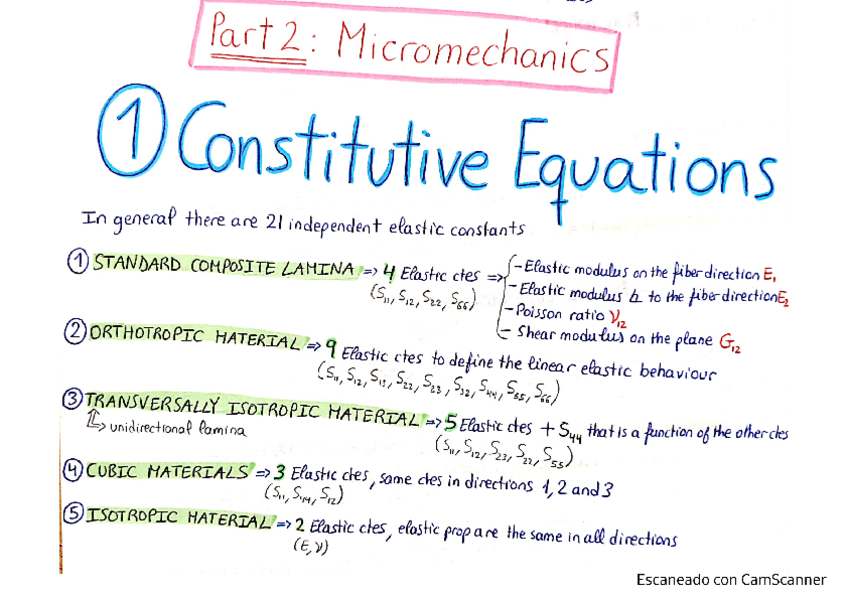 Part 2: Micromechanics
① Constitutive Equations
In general there are 21 independent elastic constants
① STANDARD COMPOSITE LAMINA => 4 Elastic ctes =>
(S₁₁, S₁₂, S₂₂, S₆₆)
- Elastic modulus on the fiber direction E₁
- Elastic modulus to the fiber direction E₂
- Poisson ratio ν₁₂
- Shear modulus on the plane G₁₂
② ORTHOTROPIC MATERIAL => 9 Elastic ctes to define the linear elastic behaviour
(S₁₁, S₁₂, S₁₃, S₂₂, S₂₃, S₃₂, S₄₄, S₅₅, S₆₆)
③ TRANSVERSALLY ISOTROPIC MATERIAL => 5 Elastic ctes + S₄₄ that is a function of the other ctes
unidirectional lamina
(S₁₁, S₁₂, S₂₃, S₂₂, S₅₅)
④ CUBIC MATERIALS => 3 Elastic ctes, same ctes in directions 1, 2 and 3
(S₁₁, S₄₄, S₁₂)
⑤ ISOTROPIC MATERIAL => 2 Elastic ctes, elastic prop are the same in all directions
(E, ν)
Escaneado con CamScanner